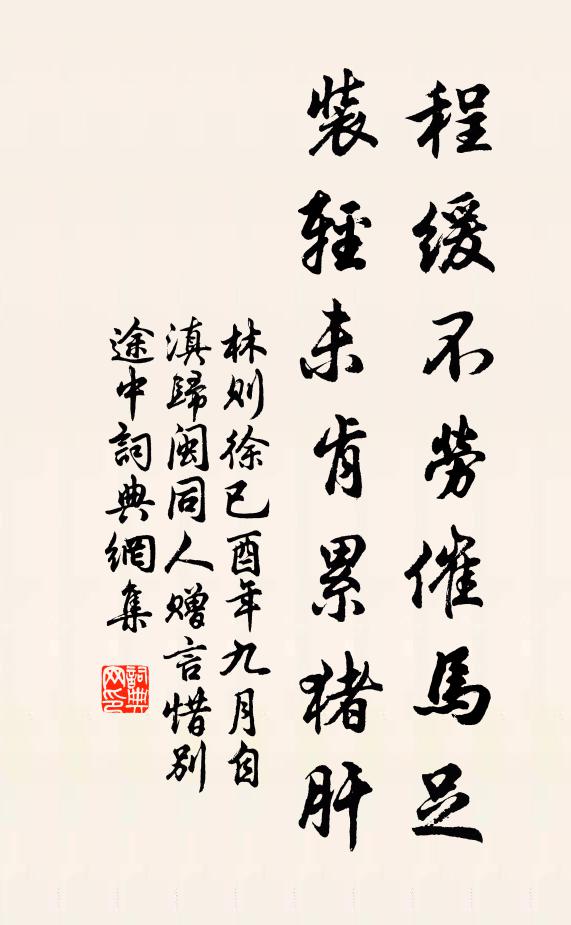 程緩不勞催馬足
裝輕未肯累猪肝
林则徐已酉年九月自
滇歸闽同人赠言惜别
途中詞典網集
詞典网印